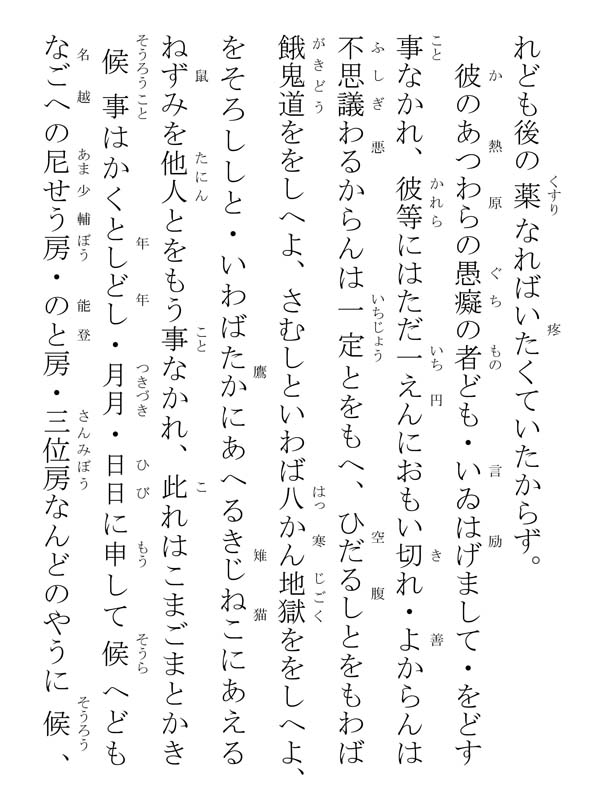 れども後の薬なればいたくていたからず。
彼のあつわらの愚癡の者ども・いゐはげまして・をどす
事なかれ、彼等にはただ一えんにおもい切れ・よからんは
不思議わるからんは一定とをもへ、ひだるしとをもわば
餓鬼道ををしへよ、さむしといわば八かん地獄ををしへよ、
をそろししと・いわばたかにあへるきじねこにあえる
ねずみを他人とをもう事なかれ、此れはこまごまとかき
候事はかくとしどし・月月・日日に申して候へども
なごへの尼せう房・のと房・三位房なんどのやうに候、